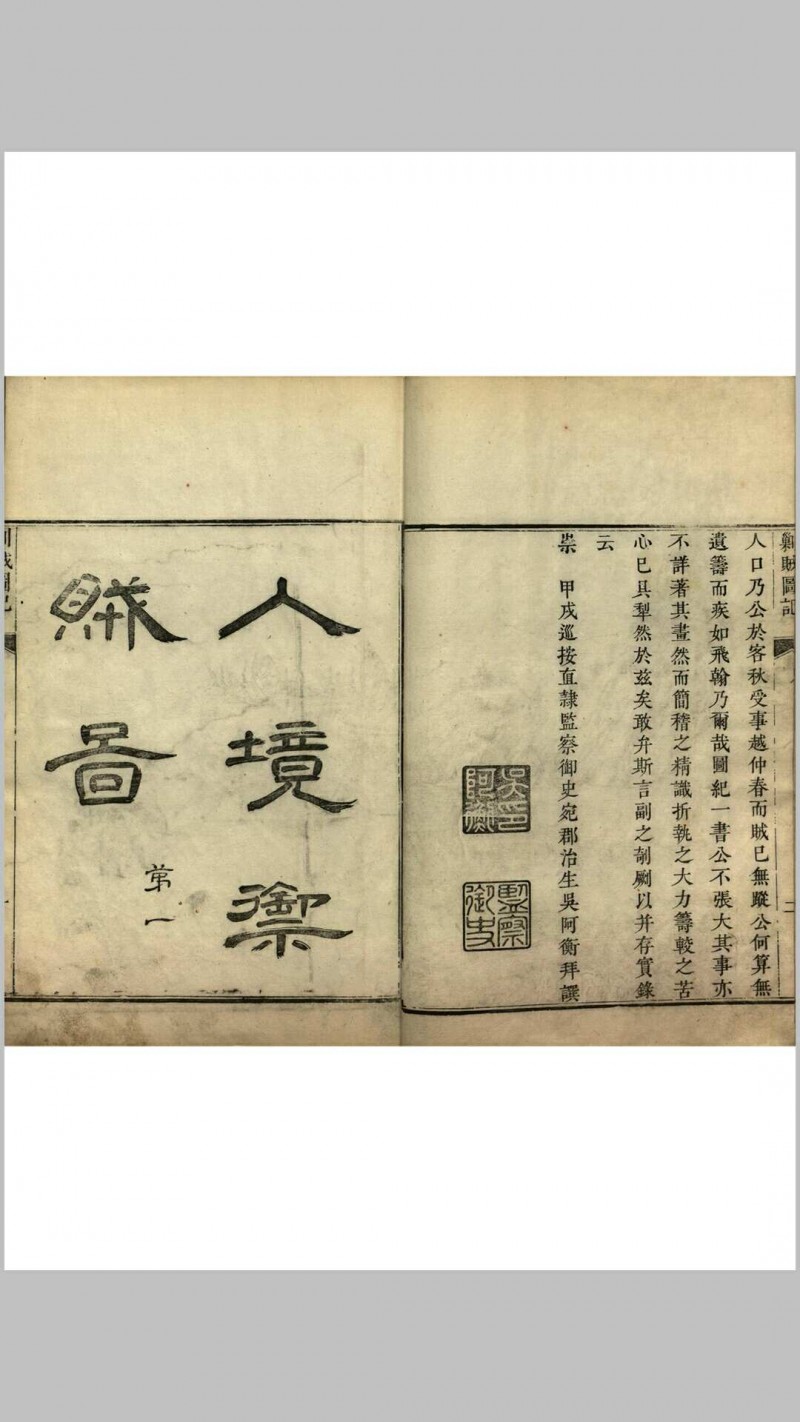 剿賊圖記
人口乃公於客秋受事越仲春而賊已無蹤公何算無
遺籌而疾如飛翰乃爾哉圖紀一書公不張大其事亦
不詳著其畫然而簡稽之精識折執之大力籌較之苦
心已具犁然於兹矣敢弁斯言副之剞劂以并存實錄
云
崇 甲戌巡按直隸監察御史宛郡治生吳阿衡拜譔
吳阿衡印
監察御史
入境禦
賊圖
第一